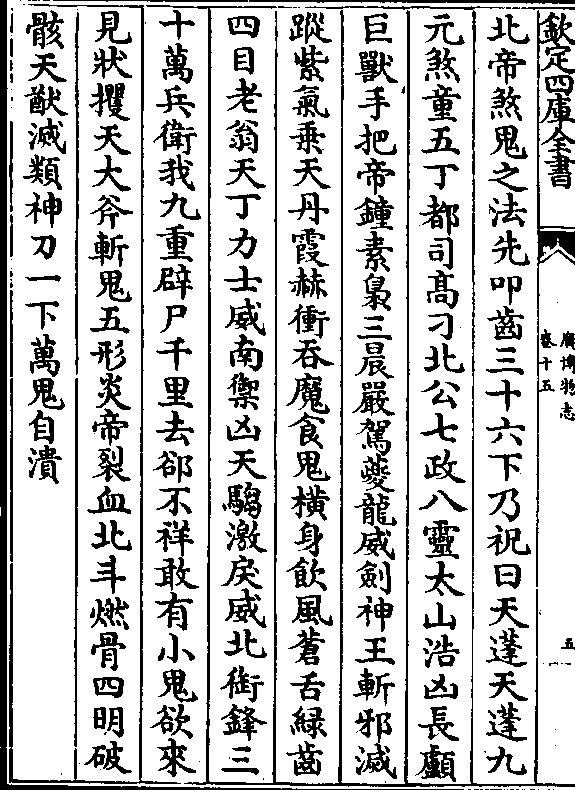 欽定四庫全書
廣博物志
卷十五
五
北帝煞鬼之法先叩齒三十六下乃祝曰天蓬天蓬九
元煞童五丁都司髙刁北公七政八靈太山浩凶長顱
巨獸手把帝鐘素梟三晨嚴駕夔龍威劍神王斬邪滅
蹤紫氣乗天丹霞赫衝吞魔食鬼横身飲風蒼舌緑齒
四目老翁天丁力士威南禦凶天騶激戾威北銜鋒三
十萬兵衛我九重辟尸千里去郤不祥敢有小鬼欲來
見狀攫天大斧斬鬼五形炎帝裂血北斗燃骨四明破
骸天猷滅類神刀一下萬鬼自潰